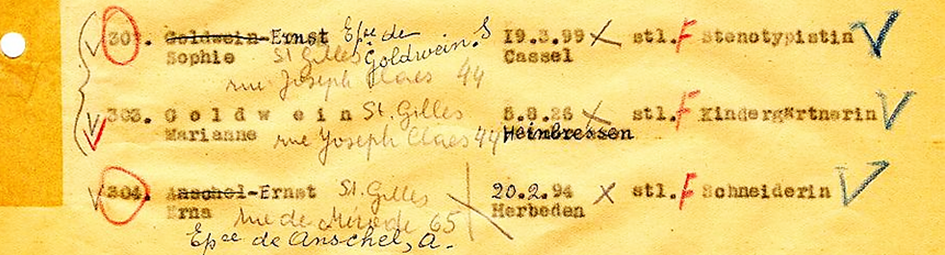 302. Goldwein-Ernst Epse de 19.3.99 X stl. F Stenotypistin V
Sophie St Gilles Goldwein. S Cassel
rue Joseph Claes 44
303. G o l d w e i n St. Gilles 8.26 X stl. F Kindergärtnerin V
Marianne rue Joseph Claes 44
304. Anschel-Ernst St. Gilles 20.2.94 X stl. F Schneiderin V
Erna rue de Mérode 65 Herbeden
Epse de Anschel, A.